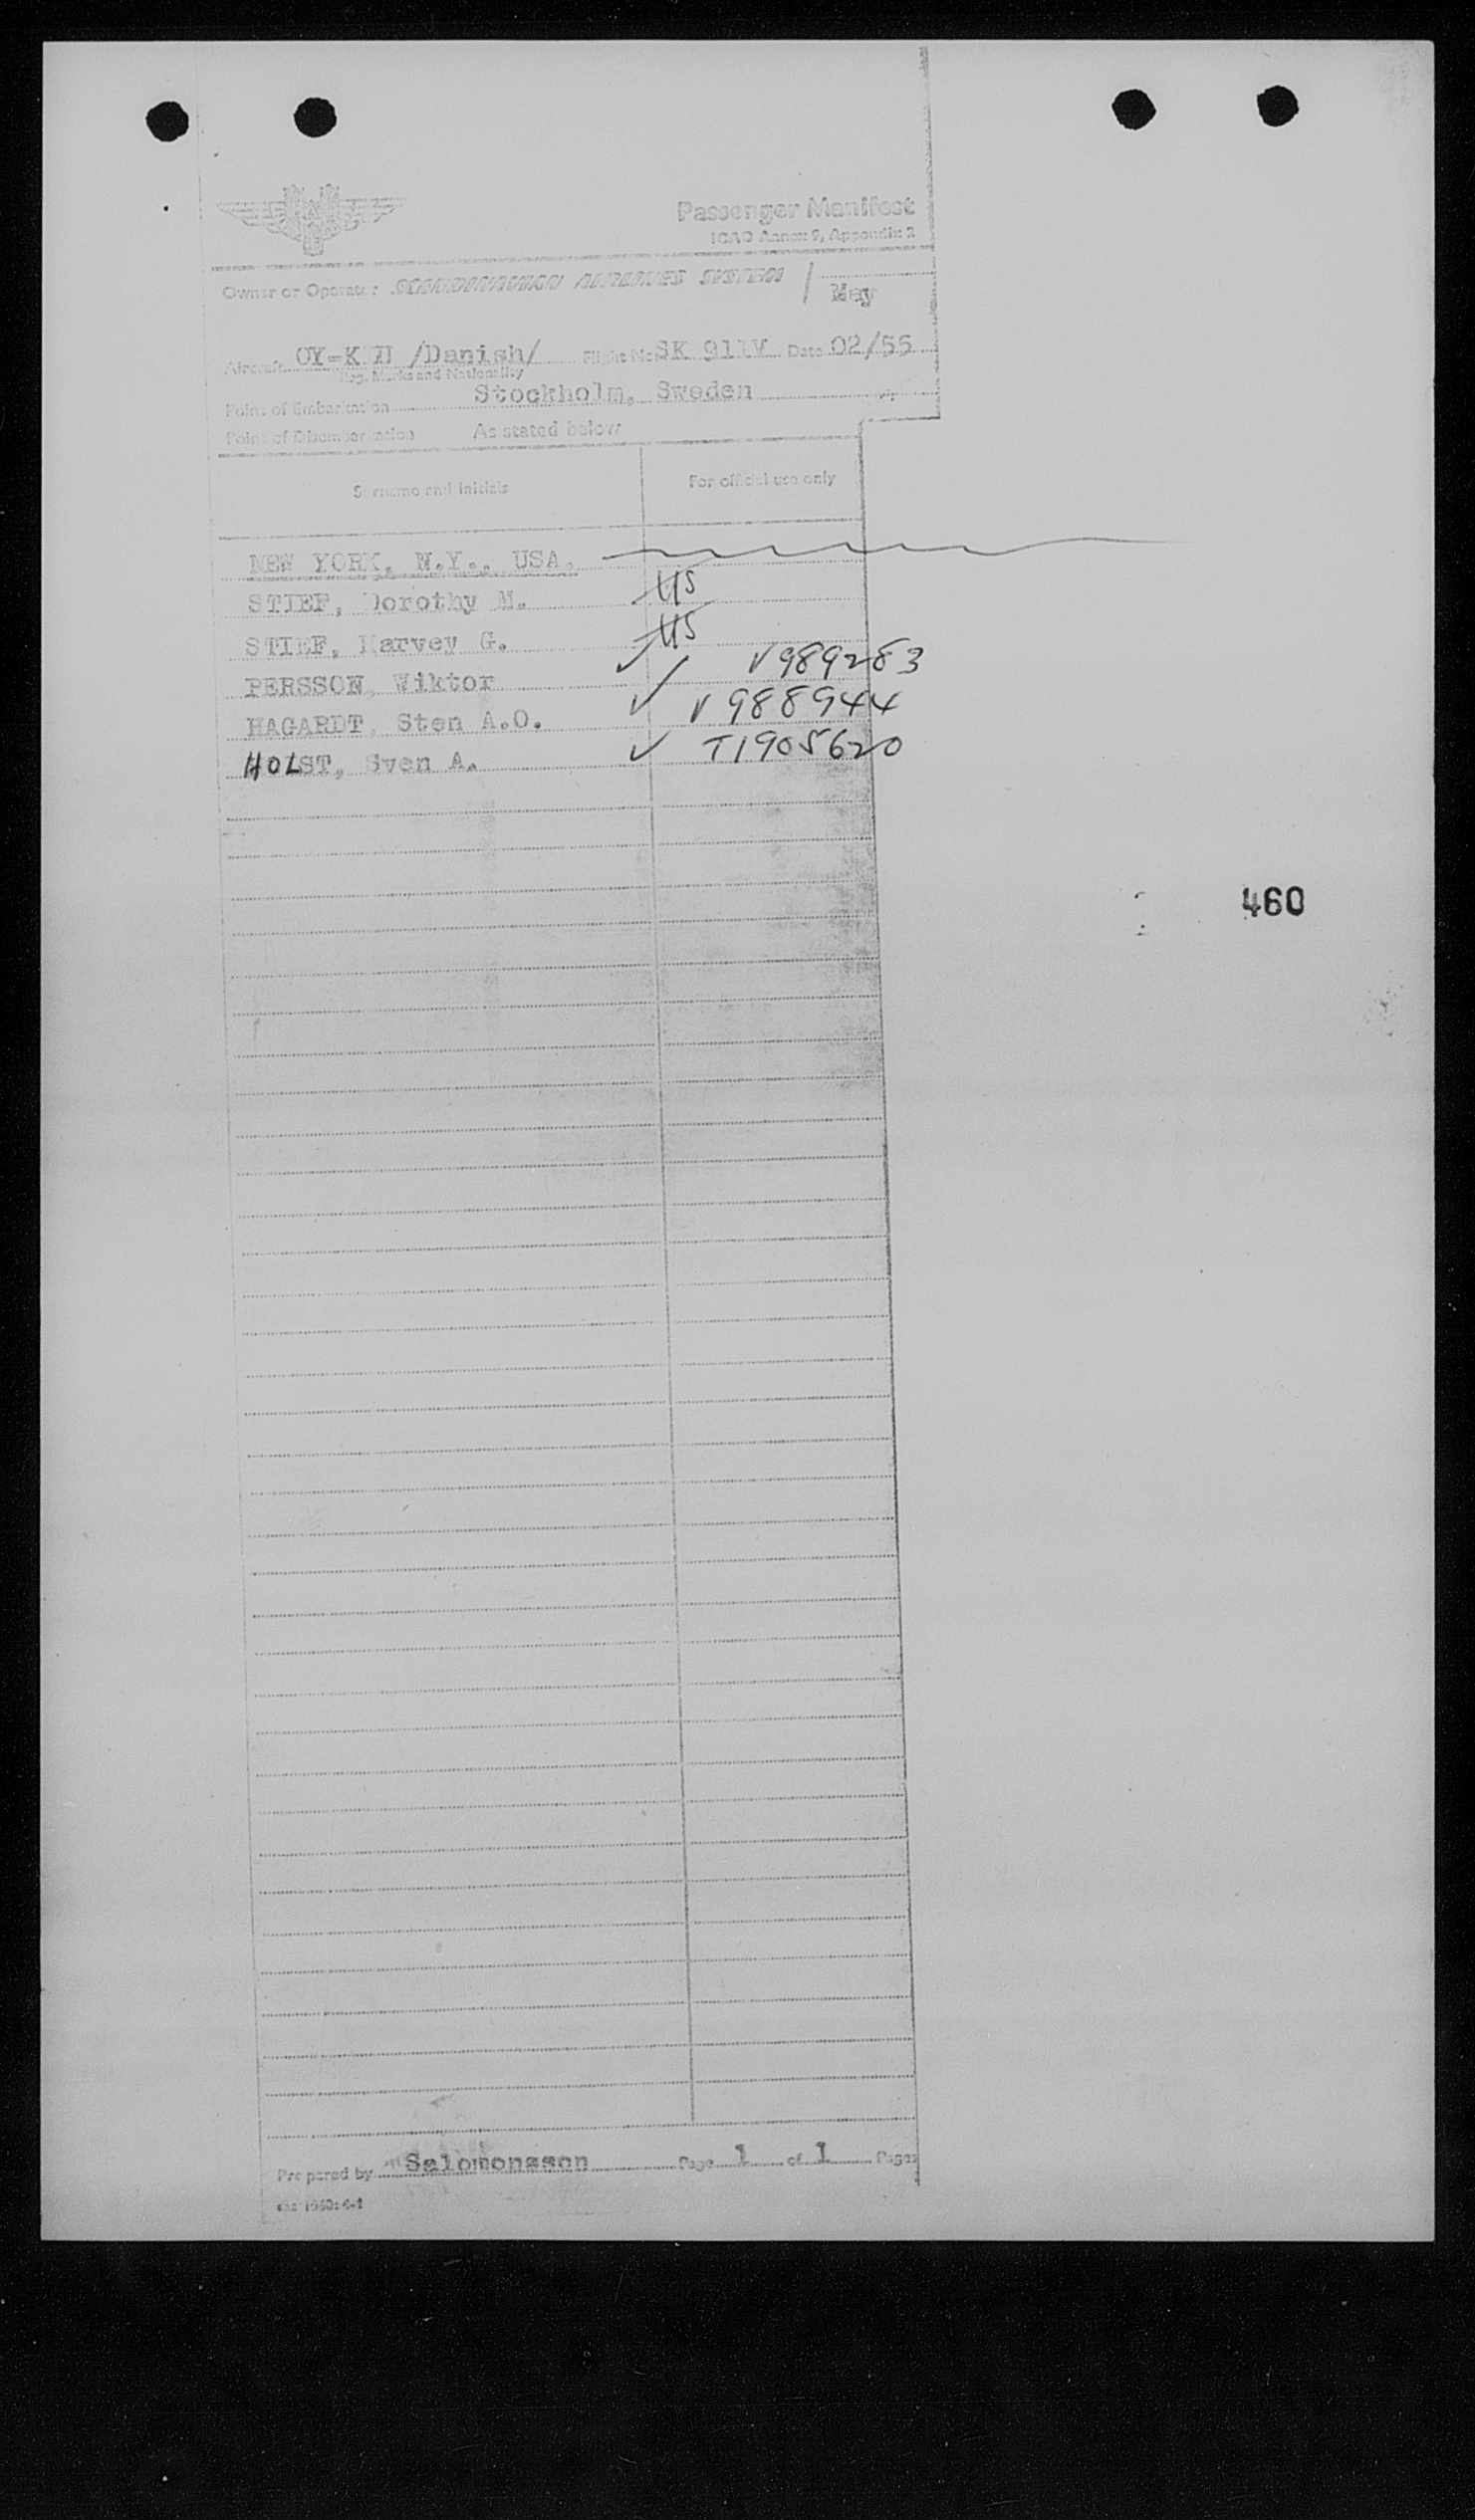 Passenger Manifest
ICAO Annex 9, Appendix 3
Owner or Operator: SCANDINAVIAN AIRLINES SYSTEM
May
Aircraft OY-K /Danish/ Flight No. SK 911V Date 02/55
Reg. Marks and Nationality
Point of Embarkation Stockholm, Sweden
Point of Disembarkation As stated below
Surname and initials For official use only
NEW YORK, N.Y., USA.
STIEF, Dorothy M. US
STIEF, Harvey G. US
PERSSON, Wiktor ✓ V989283
HAGARDT, Sten A.O. ✓ V988944
HOLST, Sven A. ✓ T1905620
460
Prepared by Salomonsson Page 1 of 1 Pages